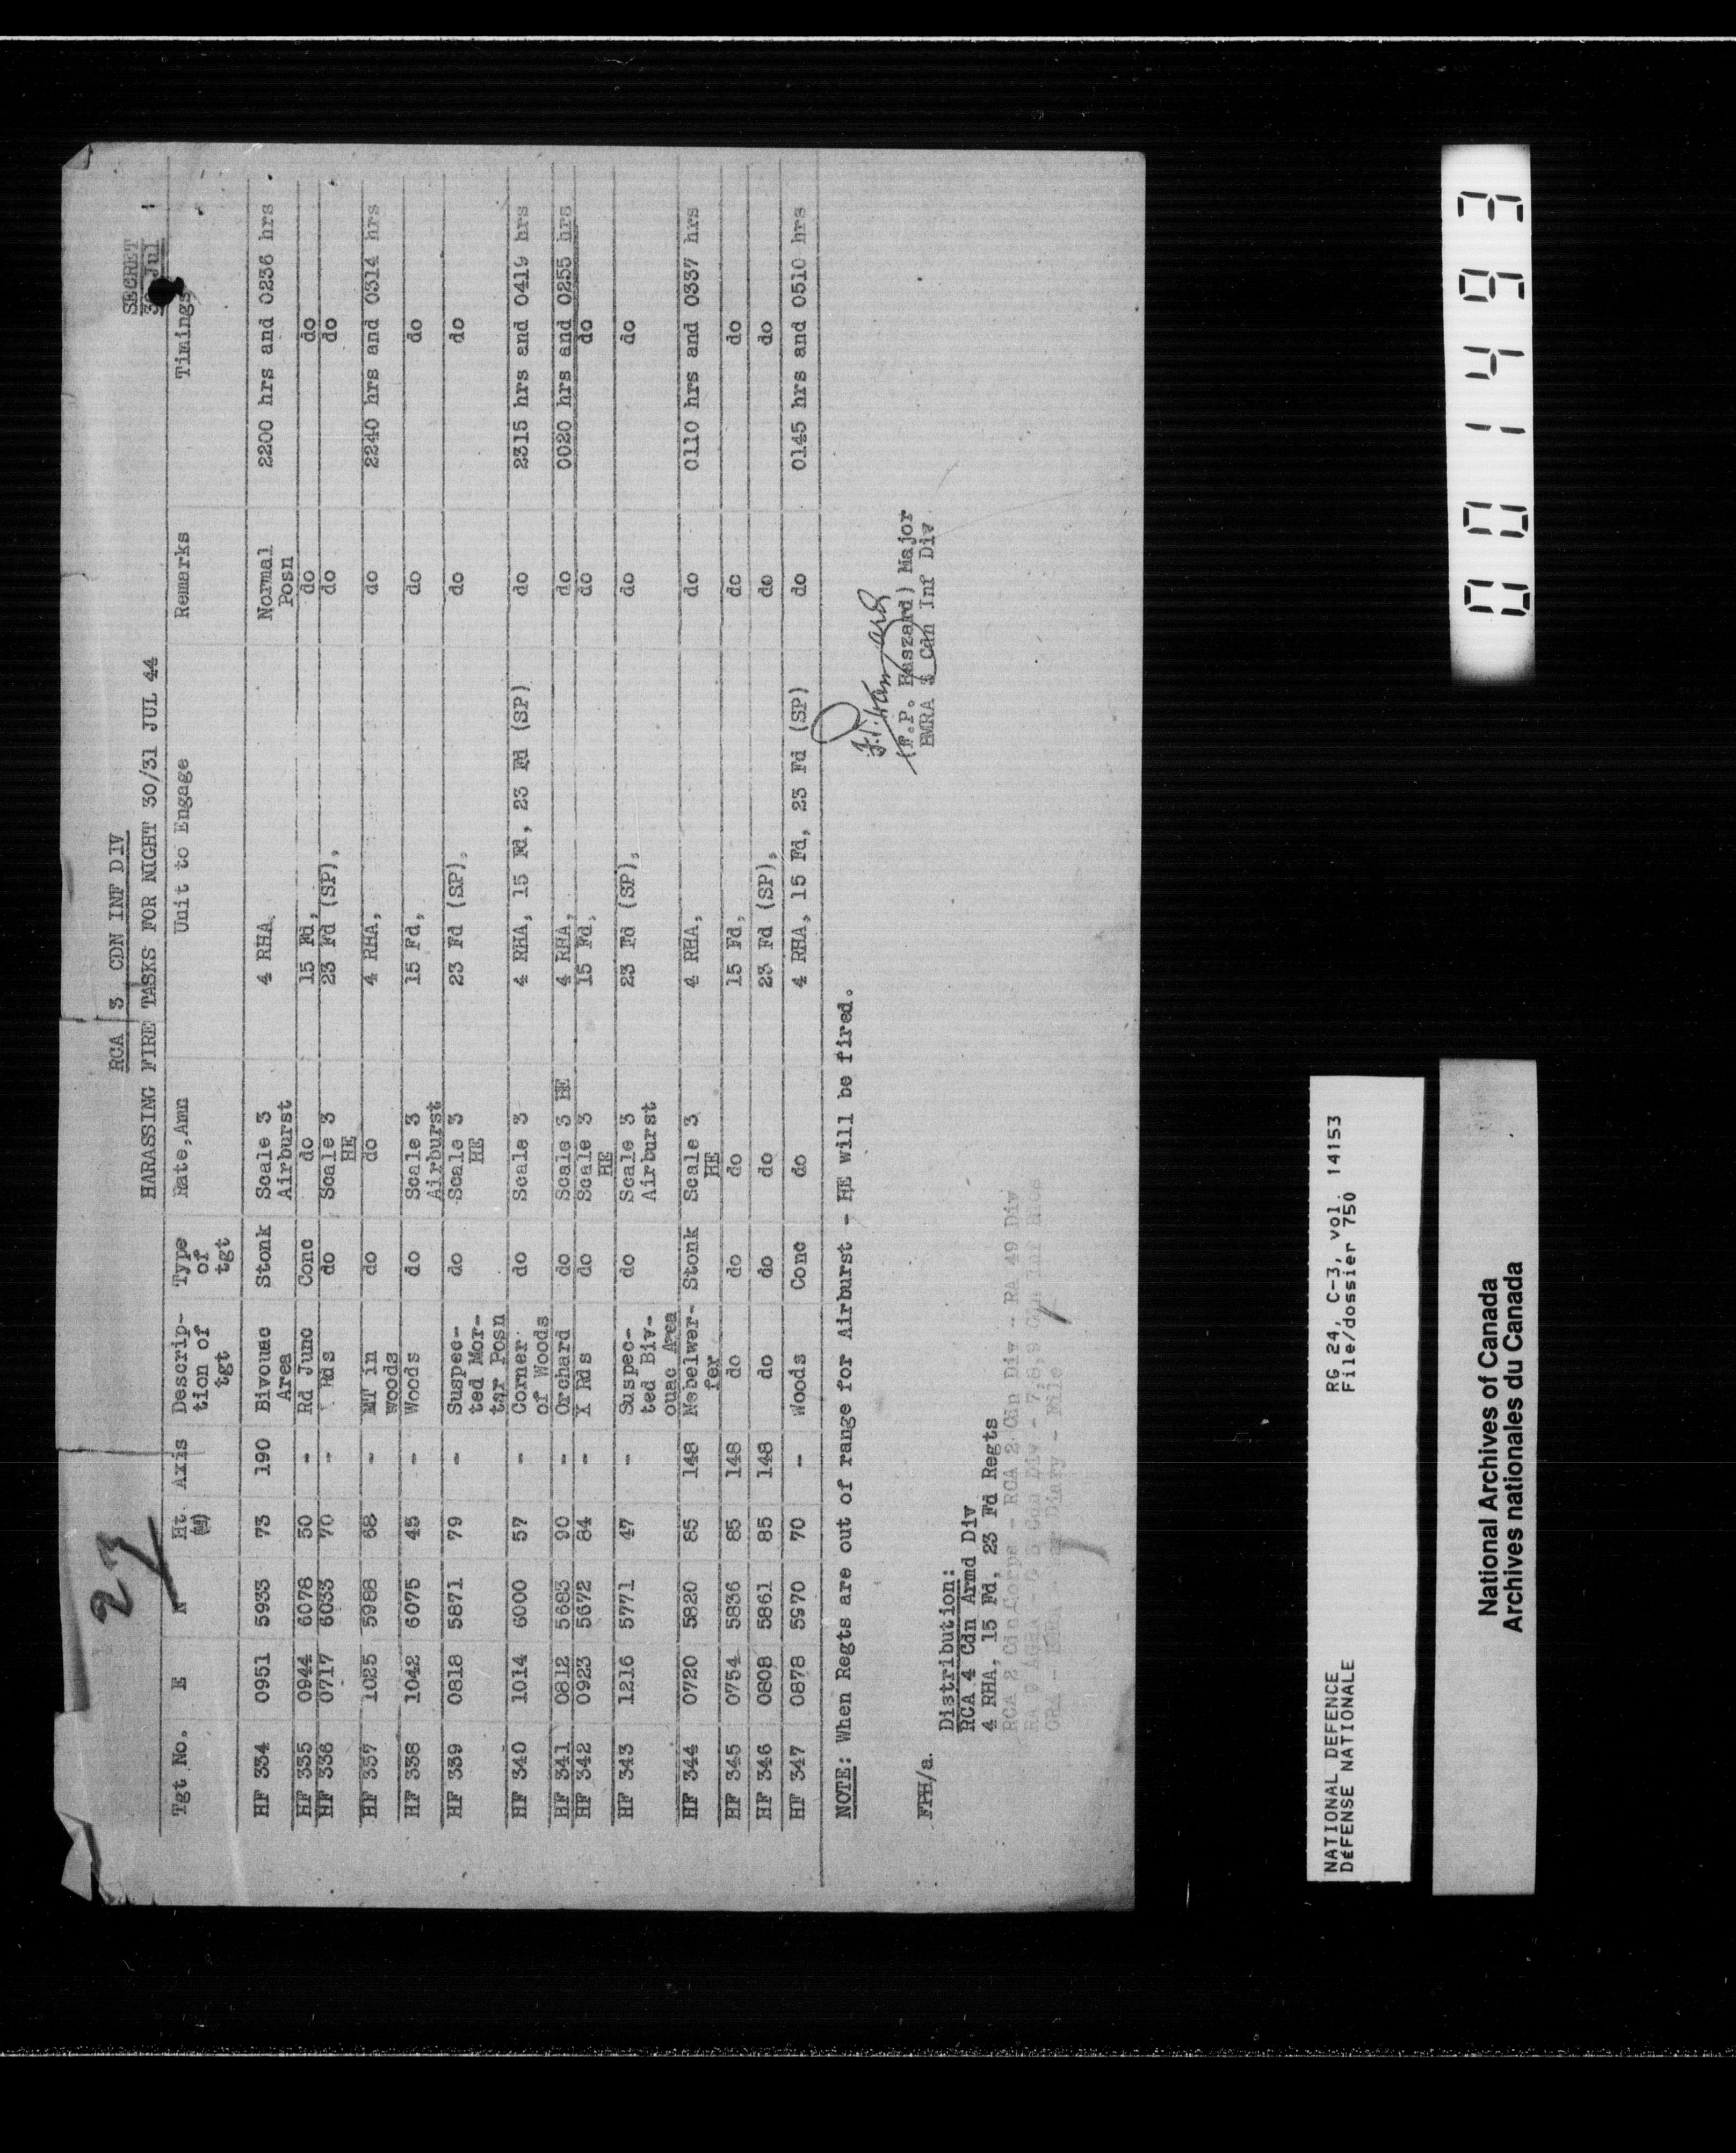 23
SECRET
30 Jul
RCA 3 CDN INF DIV
HARASSING FIRE TASKS FOR NIGHT 30/31 JUL 44
Tgt No. E N Ht (M) Axis Descrip- Type Rate,Amn Unit to Engage Remarks Timings
tion of of
tgt tgt
HF 334 0951 5933 73 190 Bivouac Stonk Scale 3 4 RHA, Normal 2200 hrs and 0236 hrs
Area Airburst Posn
HF 335 0944 6078 50 - Rd Junc Conc do 15 Fd, do do
HF 336 0717 6033 70 - Rds do Scale 3 23 Fd (SP), do do
HE
HF 337 1025 5988 68 - MT in do do 4 RHA, do 2240 hrs and 0314 hrs
woods
HF 338 1042 6075 45 - Woods do Scale 3 15 Fd, do do
Airburst
HF 339 0818 5871 79 - Suspec- do Scale 3 23 Fd (SP), do do
ted Mor- HE
tar Posn
HF 340 1014 6000 57 - Corner do Scale 3 4 RHA, 15 Fd, 23 Fd (SP) do 2315 hrs and 0419 hrs
of Woods
HF 341 0812 5683 90 - Orchard do Scale 3 HE 4 RHA, do 0020 hrs and 0255 hrs
HF 342 0923 5672 84 - X Rds do Scale 3 15 Fd, do do
HE
HF 343 1216 5771 47 - Suspec- do Scale 3 23 Fd (SP), do do
ted Biv- Airburst
ouac Area
HF 344 0720 5820 85 148 Nebelwer- Stonk Scale 3 4 RHA, do 0110 hrs and 0337 hrs
fer HE
HF 345 0754 5836 85 148 do do do 15 Fd, do do
HF 346 0808 5861 85 148 do do do 23 Fd (SP), do do
HF 347 0878 5970 70 - Woods Conc do 4 RHA, 15 Fd, 23 Fd (SP) do 0145 hrs and 0510 hrs
NOTE: When Regts are out of range for Airburst - HE will be fired.
(F.P. Haszard) Major
BMRA 3 Cdn Inf Div
FPH/a.
Distribution:
RCA 4 Cdn Armd Div
4 RHA, 15 Fd, 23 Fd Regts
RCA 2 Cdn Corps - RCA 2 Cdn Div - RA 49 Div
NATIONAL DEFENCE RG 24, C-3, vol. 14153
DÉFENSE NATIONALE File/dossier 750
National Archives of Canada
Archives nationales du Canada
001493